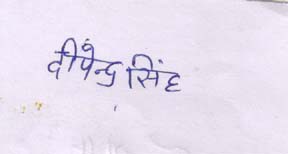 दीपेन्द्र सिंह